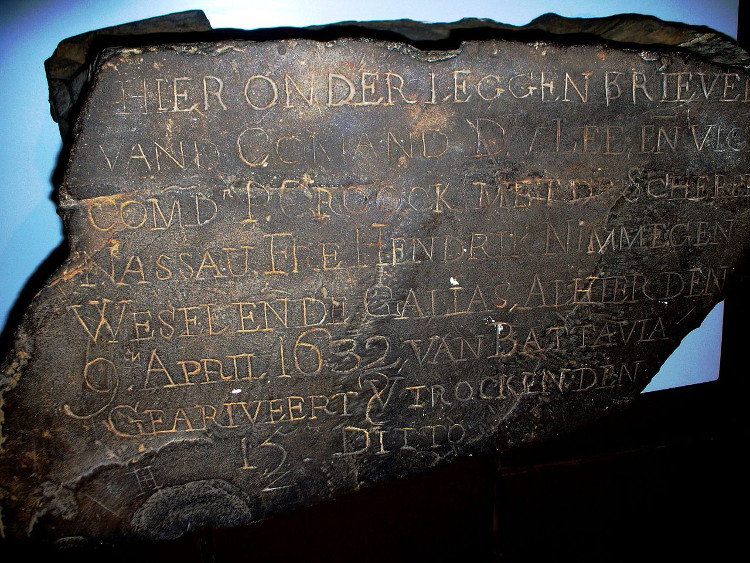 HIER ONDER LEGGEN BRIEVEN
VAND COMMAND D V LEE, EN VIC
COMDr P. CROOCK. MET De SCHEPE
NASSAU. FRE HENDRIK NIMMEGEN
WESEL EN DE GALIAS, ALHIER DEN
9en APRIL 1632, VAN BATTAVIA
GEARIVEERT & VTROCKEN DEN
15. DITTO